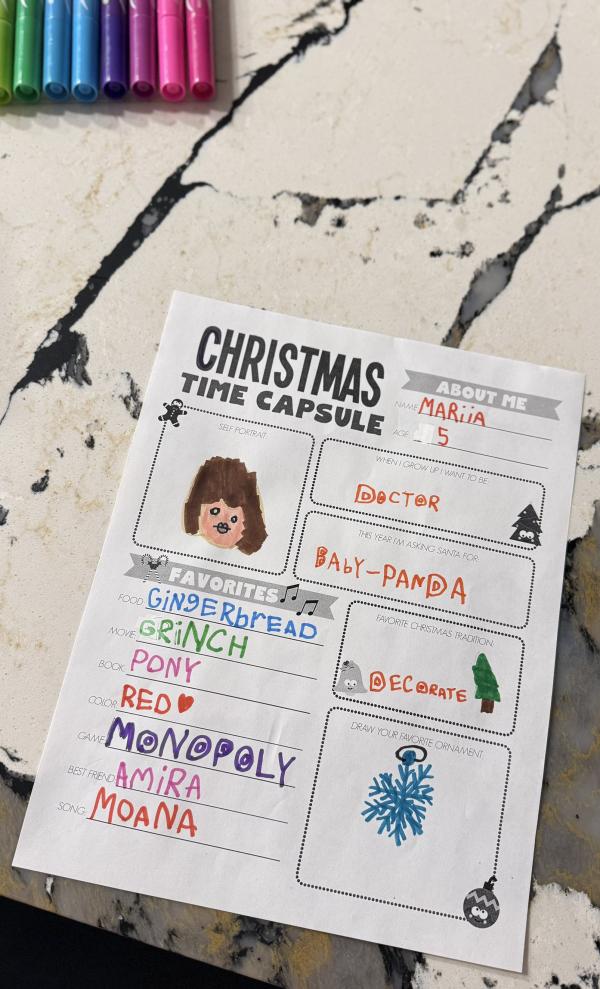 CHRISTMAS
TIME CAPSULE
ABOUT ME
NAME: MARiiA
AGE: 5
SELF PORTRAIT:
WHEN I GROW UP I WANT TO BE:
DOCTOR
THIS YEAR I'M ASKING SANTA FOR:
BAbY-PANDA
FAVORITES
FOOD: GiNGERbREAD
MOVIE: GRiNCH
BOOK: PONY
COLOR: RED ♥
GAME: MONOPOLY
BEST FRIEND: AMiRA
SONG: MOANA
FAVORITE CHRISTMAS TRADITION:
DECORATE
DRAW YOUR FAVORITE ORNAMENT: